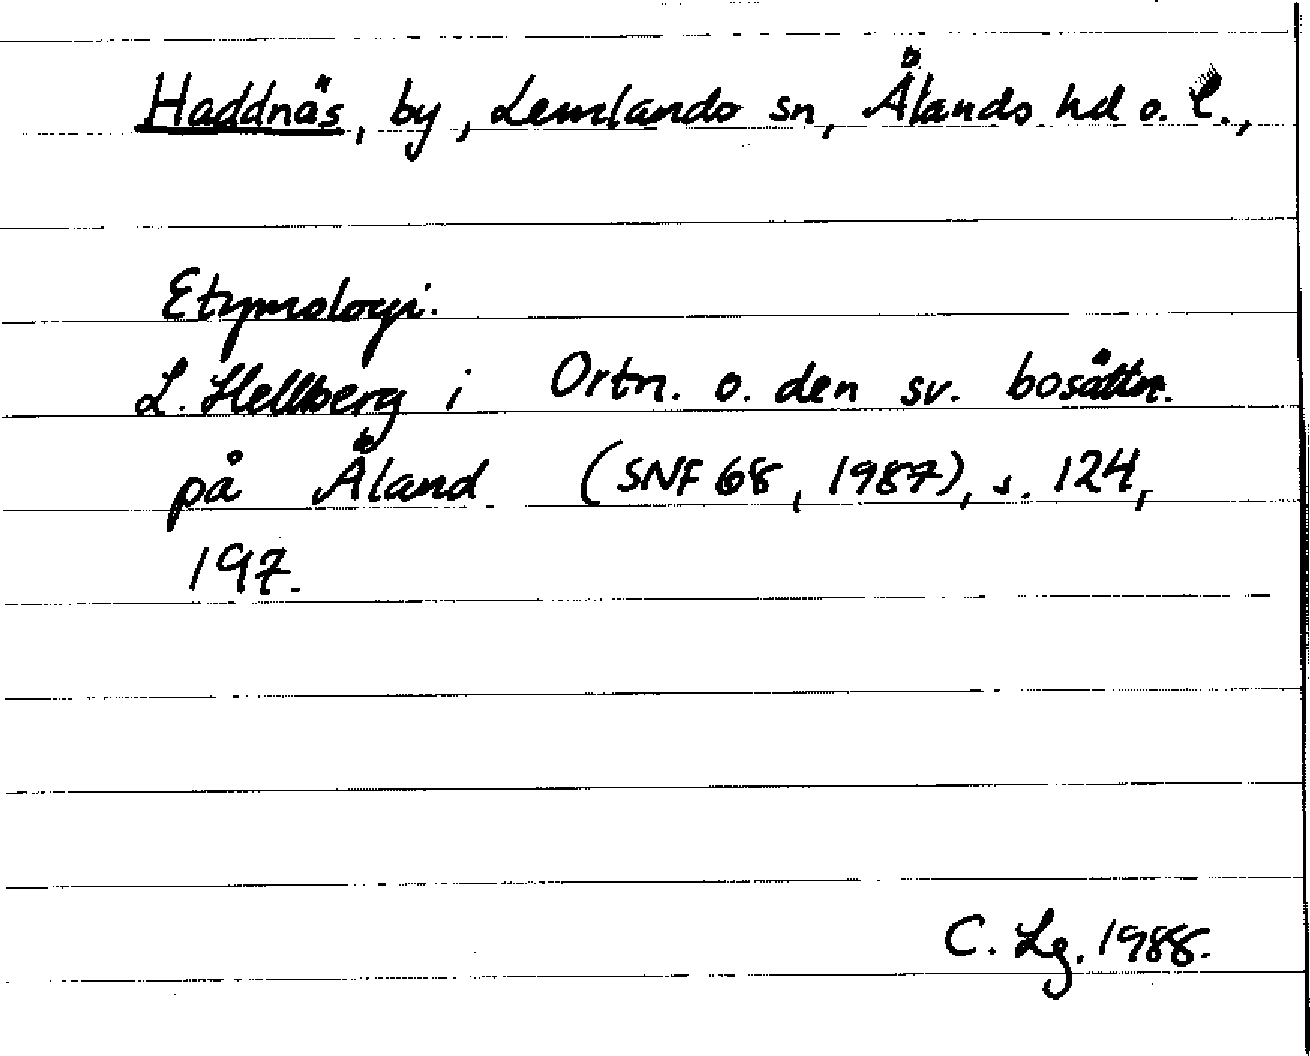 Haddnäs, by, Lemlands sn, Ålands hd o. l.,
Etymologi.
L. Hellberg i Ortn. o. den sv. bosättn.
på Åland (SNF 68, 1987), s. 124,
197.
C. Lg. 1988.